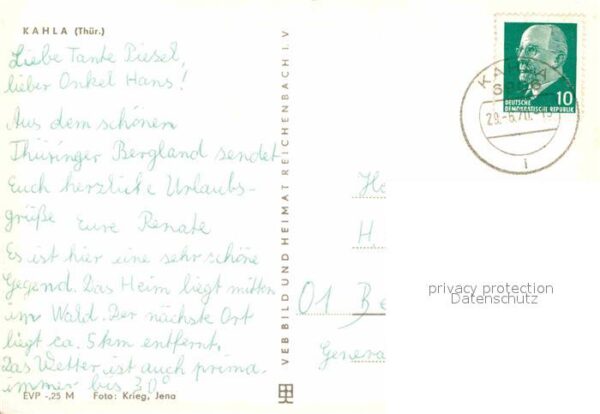 KAHLA (Thür.)
Liebe Tante Piesel,
lieber Onkel Hans!
Aus dem schönen
Thüringer Bergland sendet
Euch herzliche Urlaubs-
grüße Eure Renate
Es ist hier eine sehr schöne
Gegend. Das Heim liegt mitten
im Wald. Der nächste Ort
liegt ca. 5 km entfernt.
Das Wetter ist auch prima.
immer bis 30°
EVP -,25 M Foto: Krieg, Jena
VEB BILD UND HEIMAT REICHENBACH I. V
DEUTSCHE
DEMOKRATISCHE REPUBLIK
10
KAHLA
29.-6.70.-
i
H.
01 Be
Genera
privacy protection
Datenschutz